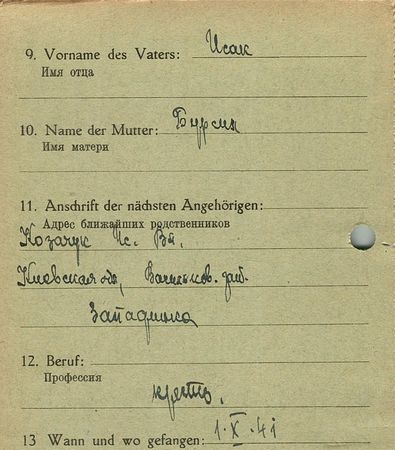 9. Vorname des Vaters: Исак
Имя отца
10. Name der Mutter:
Имя матери
11. Anschrift der nächsten Angehörigen:
Адрес ближайших родственников
Козачук Ис. Ви.
Киевская об, Васильков.
Западинка
12. Beruf:
Профессия
крест.
13 Wann und wo gefangen: 1·X·41